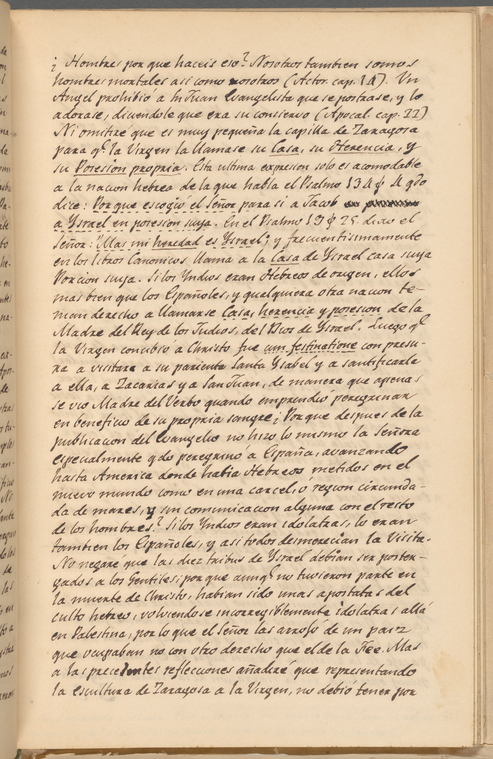 ¿ Hombres por que haceis eso? Nosotros tambien somos
hombres mortales asi como vosotros (Actor. cap. 14). Un
Angel prohibio a Sn Juan Evangelista que se postrase, y lo
adorase, diciendole que era su consiervo (Apocal. cap. 22)
Ni omitiré que es muy pequeña la capilla de Zaragosa
para q.e la Virgen la llamase su Casa, su Herencia, y
su Posesion propria. Esta ultima expresion solo es acomodable
a la nacion hebrea de la que habla el Psalmo 134 ℣ 4 qdo
dice: Porque escogio el Señor para si a Jacob
a Ysrael en posesion suya. En el Psalmo 19 ℣ 25 dixo el
Señor: Mas mi heredad es Ysrael; y frecuentisimamente
en los libros Canonicos llama a la Casa de Ysrael casa suya
Porcion suya. Si los Yndios eran Hebreos de origen, ellos
mas bien que los Españoles, y qualquiera otra nacion te-
nian derecho a llamarse Casa, herencia y posesion de la
Madre del Rey de los Judios, del Dios de Ysrael. Luego q.e
la Virgen concibió a Christo fue cum festinatione con presu-
ra a visitar a su parienta Santa Ysabel y a santificarla
a ella, a Zacarias y a San Juan, de manera que apenas
se vio Madre del Verbo quando emprendio peregrinar
en beneficio de su propria sangre ¿ Porque despues de la
publicacion del Evangelio no hizo lo mismo la Señora
especialmente qdo peregrino a España, avanzando
hasta America donde habia Hebreos metidos en el
nuevo mundo como en una carcel, ó region circunda-
da de mares, y sin comunicacion alguna con el resto
de los hombres? Si los Yndios eran idolatras, lo eran
tambien los Españoles, y asi todos desmerecian la Visita.
No negare que las diez tribus de Ysrael debian ser poster-
gados a los Gentiles; por que aunq.e no tuvieron parte en
la muerte de Christo, habian sido unas apostatas del
culto hebreo, volviendose incorregiblemente idolatras allá
en Palestina, por lo que el Señor las arrojó de un pais
que ocupaban no con otro derecho que el de la Fee. Mas
a las precedentes reflecciones añadiré que representando
la escultura de Zaragosa a la Virgen, no debió tener por